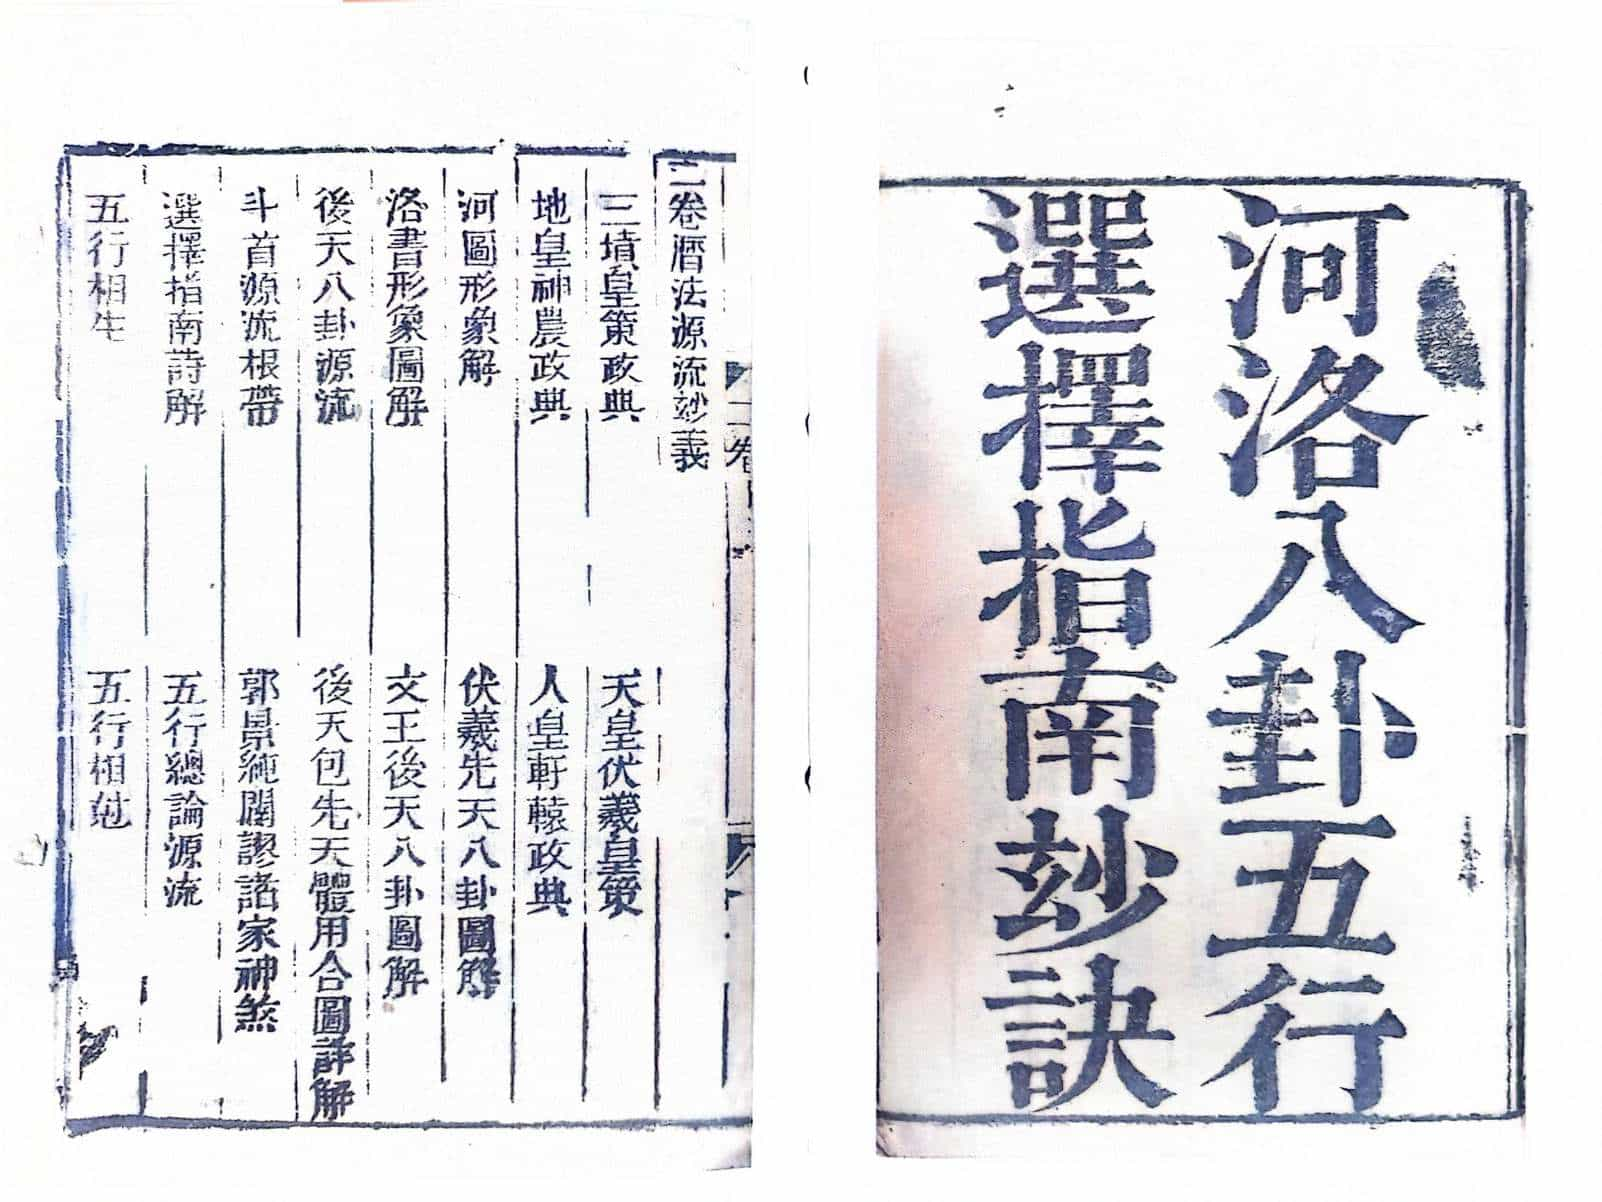 河洛八卦五行
選擇指南玅訣
二卷曆法源流玅義
三墳皇策政典
天皇伏羲皇策
地皇神農政典
人皇軒轅政典
河圖形象解
伏羲先天八卦圖解
洛書形象圖解
文王後天八卦圖解
後天八卦源流
後天包先天體用合圖詳解
斗首源流根帶
郭景純闢謬諸家神煞
選擇指南詩解
五行總論源流
五行相生
五行相尅